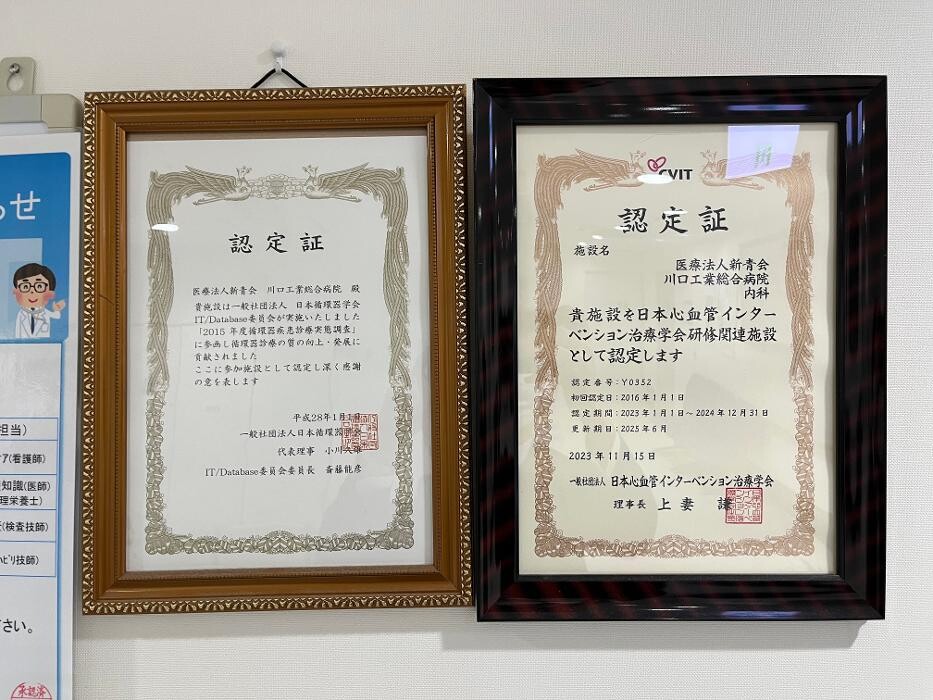 らせ
担当）
ア(看護師)
知識(医師)
理栄養士)
(検査技師)
ﾊﾋﾞﾘ技師)
さい。
承認済
認定証
医療法人新青会 川口工業総合病院 殿
貴施設は一般社団法人 日本循環器学会
IT/Database委員会が実施いたしました
「2015年度循環器疾患診療実態調査」
に参画し循環器診療の質の向上・発展に
貢献されました
ここに参加施設として認定し深く感謝
の意を表します
平成28年1月1日
一般社団法人日本循環器学会
代表理事 小川久雄
IT/Database委員会委員長 斎藤能彦
CVIT
認定証
施設名
医療法人新青会
川口工業総合病院
内科
貴施設を日本心血管インター
ベンション治療学会研修関連施設
として認定します
認定番号：Y0352
初回認定日：2016年1月1日
認定期間：2023年1月1日～2024年12月31日
更新期日：2025年6月
2023年11月15日
一般社団法人 日本心血管インターベンション治療学会
理事長 上妻 謙